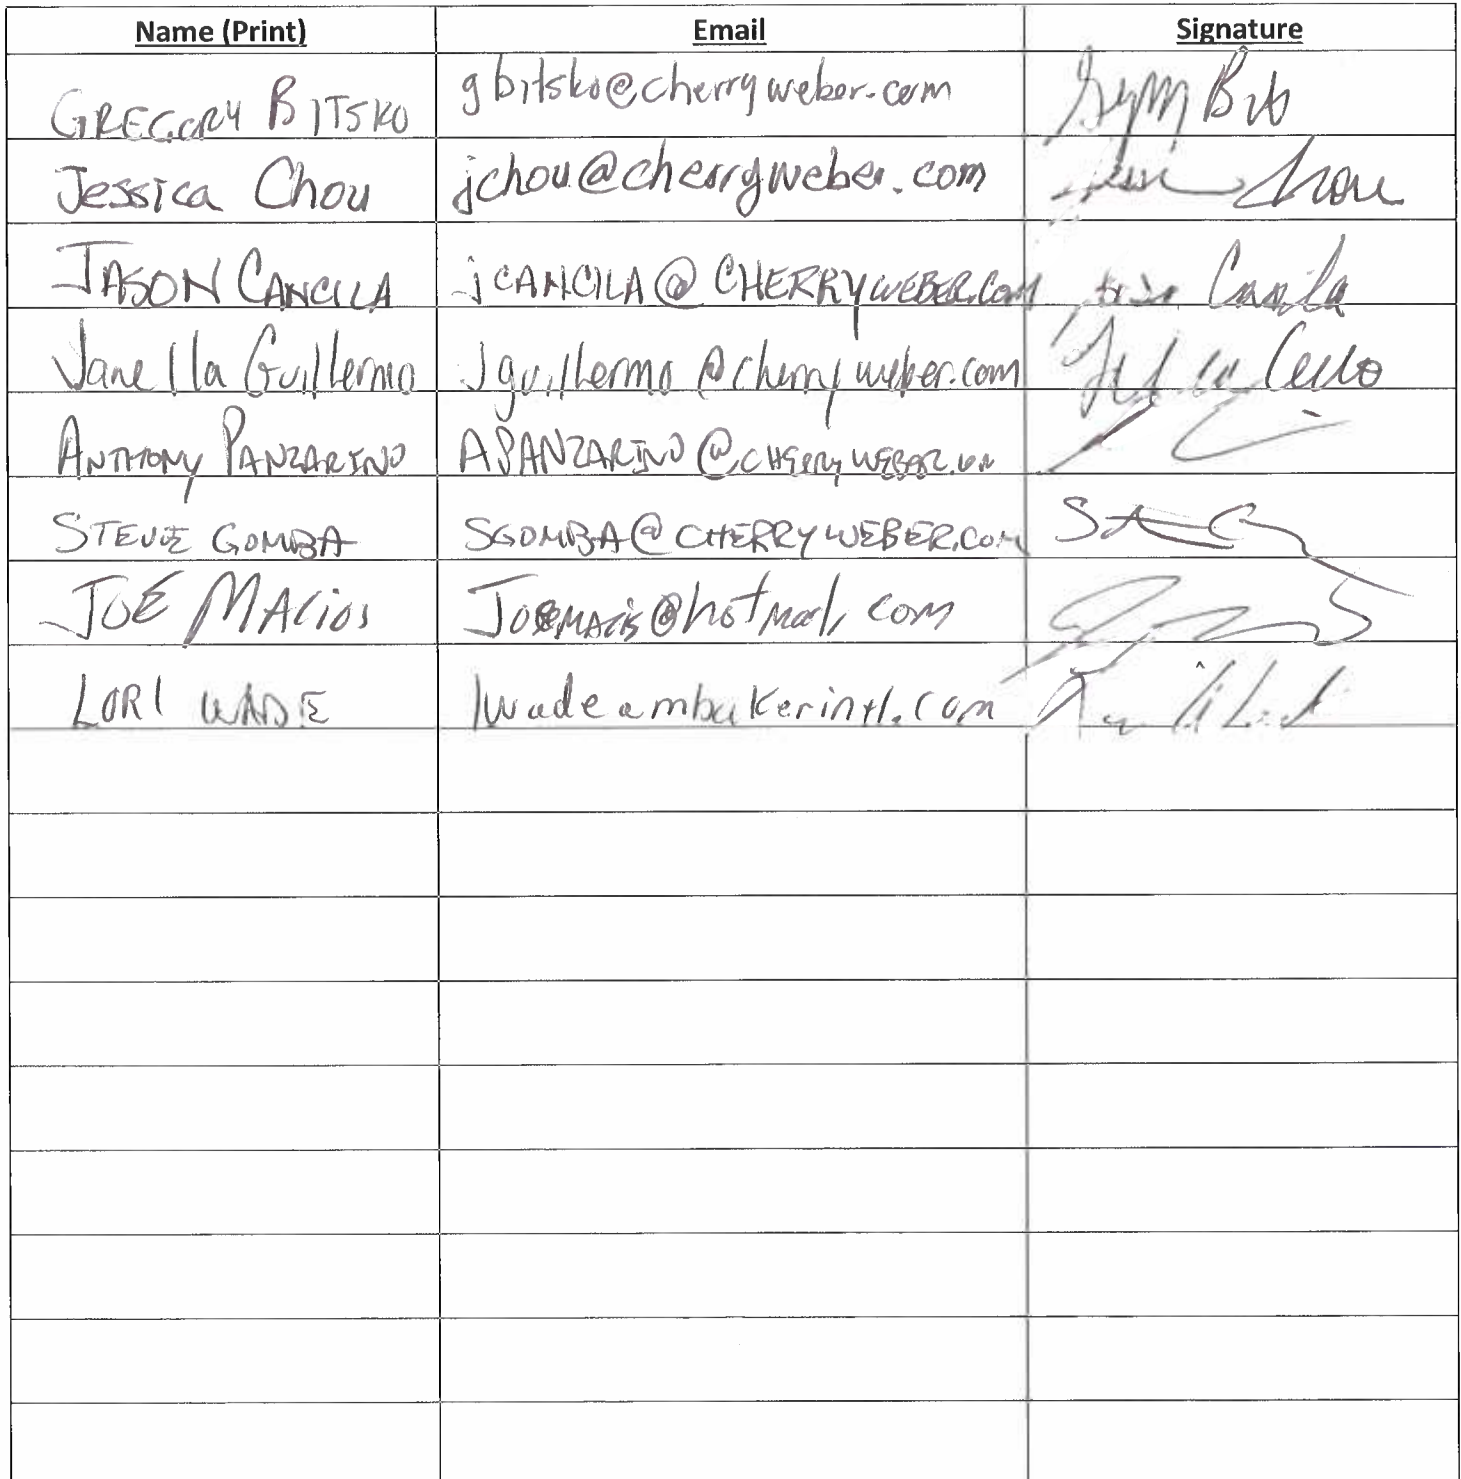 Name (Print) Email Signature
GREGORY BITSKO gbitsko@cherryweber.com
Jessica Chou jchou@cherryweber.com Chou
JASON CANCILA jCANCILA@CHERRYWEBER.COM
Janella Guillermo Jguillermo@cherryweber.com
ANTHONY PANZARINO APANZARINO@CHERRYWEBER.COM
STEVE GOMBA SGOMBA@CHERRYWEBER.COM
JOE MACios @hotmail.com
LORI WADE lwadeambakerintl.com